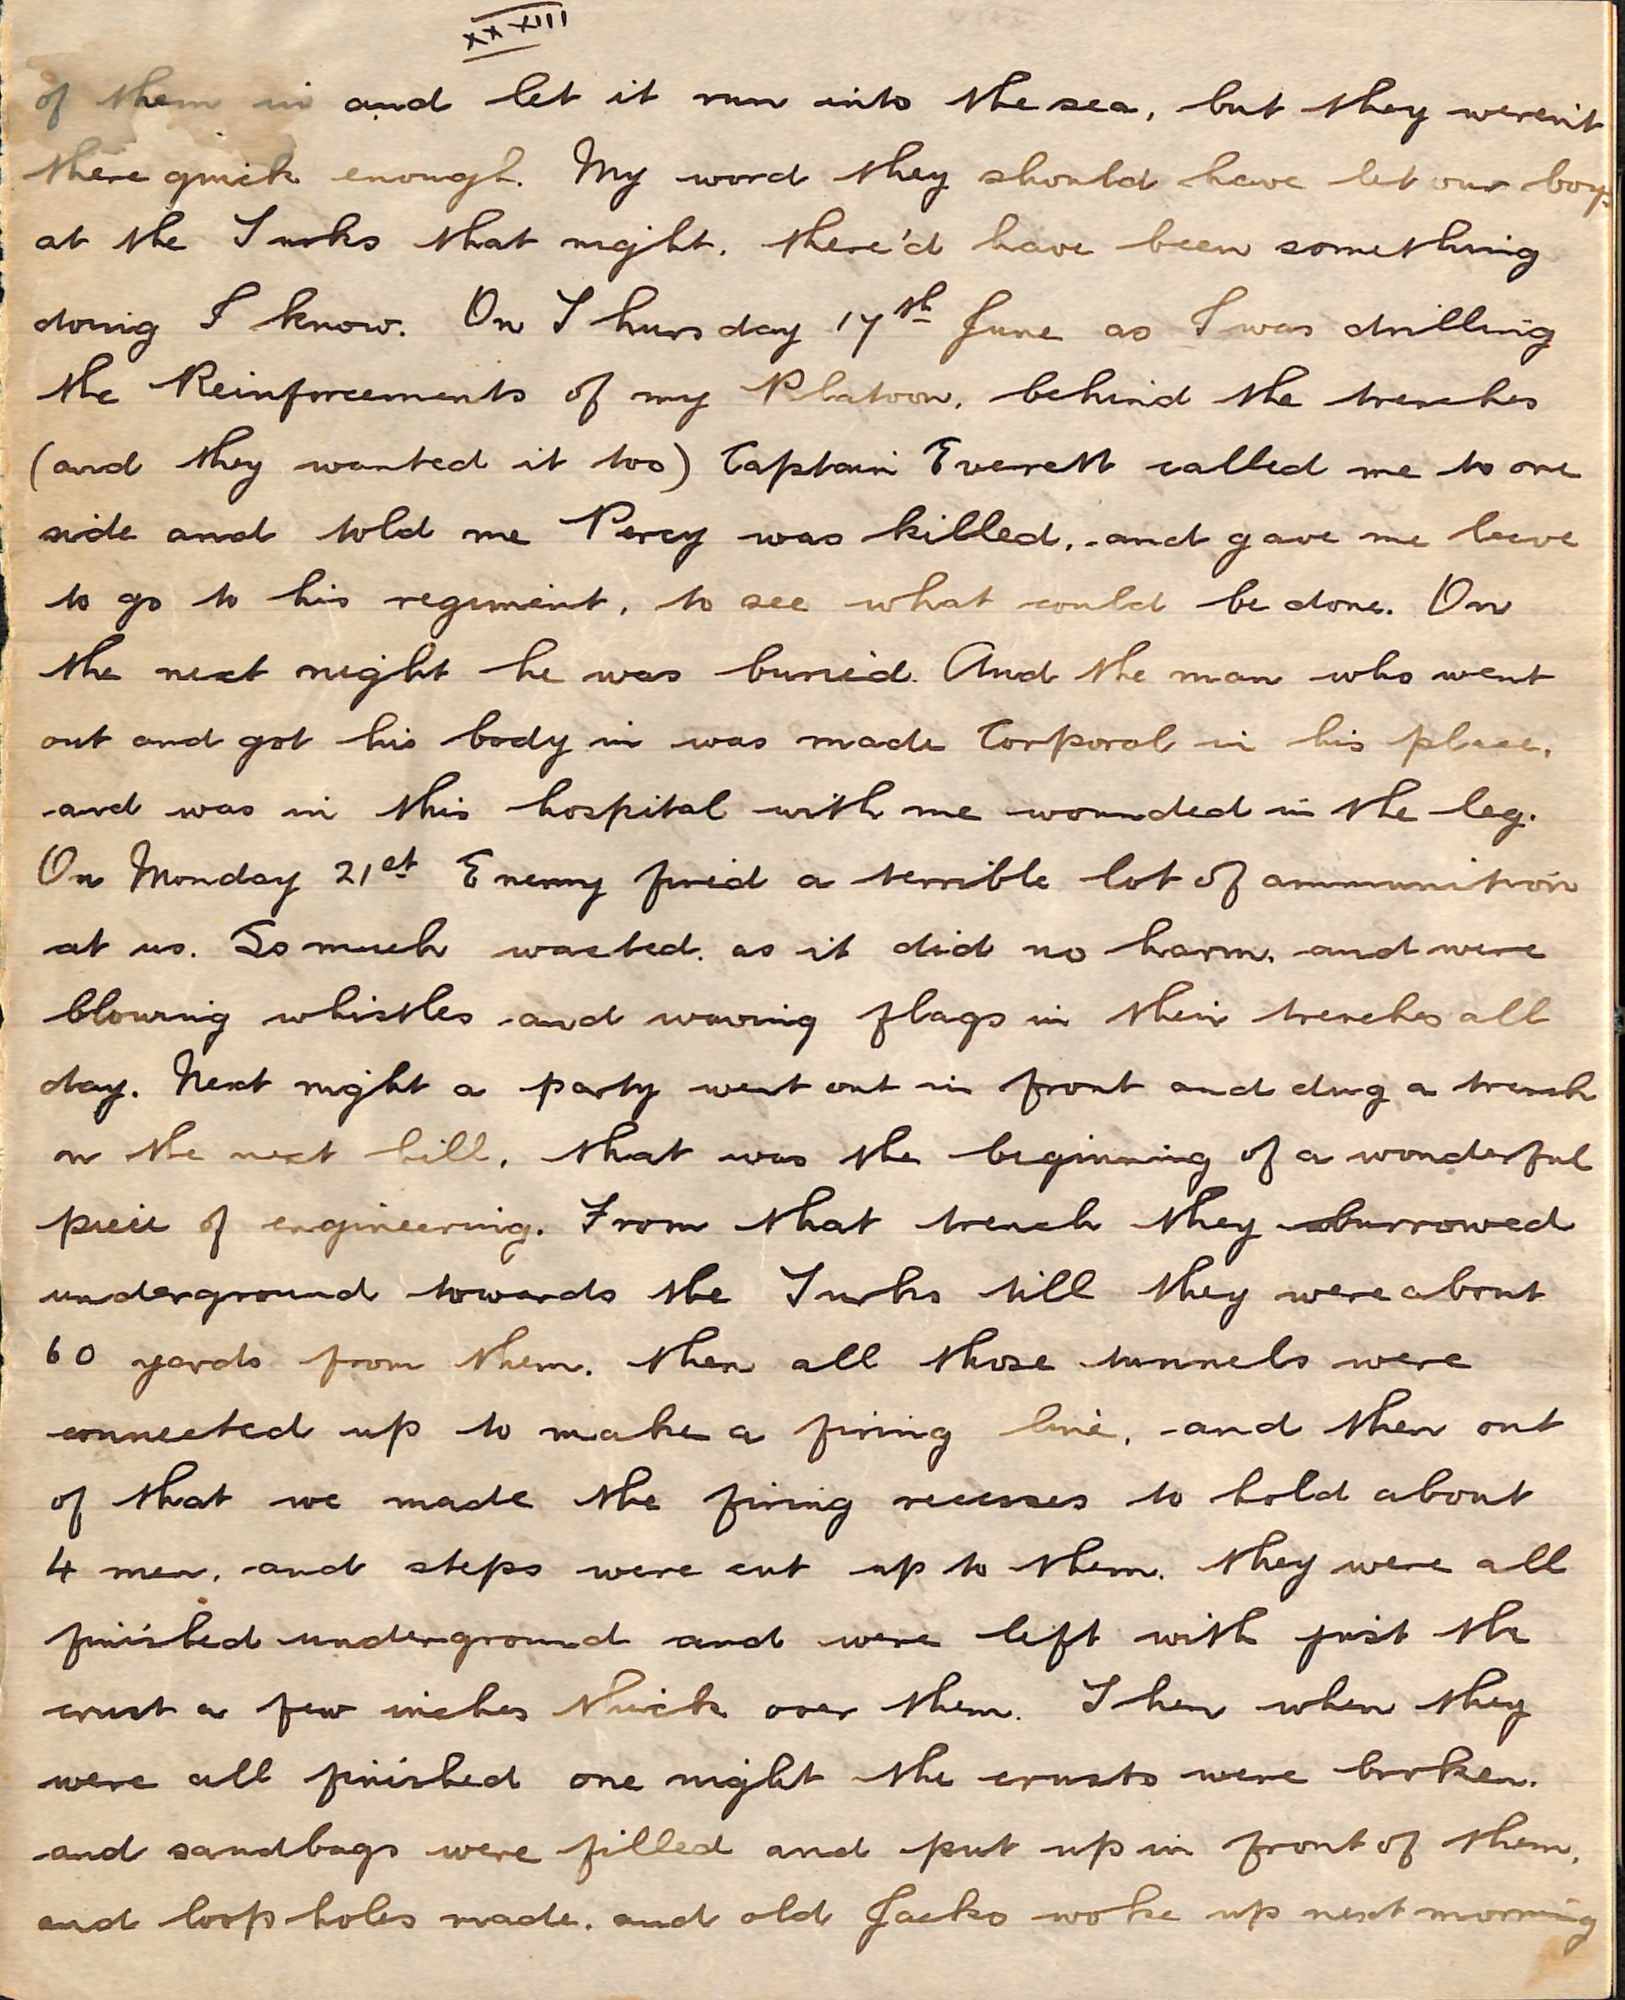 XXXIII
of them in and let it run into the sea, but they weren't
there quick enough. My word they should have let our boys
at the Turks that night, there'd have been something
doing I know. On Thursday 17th June as I was drilling
the Reinforcements of my Platoon, behind the trenches
(and they wanted it too) Captain Everett called me to one
side and told me Percy was killed, and gave me leave
to go to his regiment, to see what could be done. On
the next night he was buried. And the man who went
out and got his body in was made Corporal in his place,
and was in this hospital with me wounded in the leg.
On Monday 21st Enemy fired a terrible lot of ammunition
at us. So much wasted, as it did no harm, and were
blowing whistles and waving flags in their trenches all
day. Next night a party went out in front and dug a trench
on the next hill, that was the beginning of a wonderful
piece of engineering. From that trench they burrowed
underground towards the Turks till they were about
60 yards from them, then all those tunnels were
connected up to make a firing line, and then out
of that we made the firing recesses to hold about
4 men, and steps were cut up to them. they were all
finished underground and were left with just the
crust a few inches thick over them. Then when they
were all finished one night the crusts were broken.
and sandbags were filled and put up in front of them,
and loop holes made, and old Jacko woke up next morning